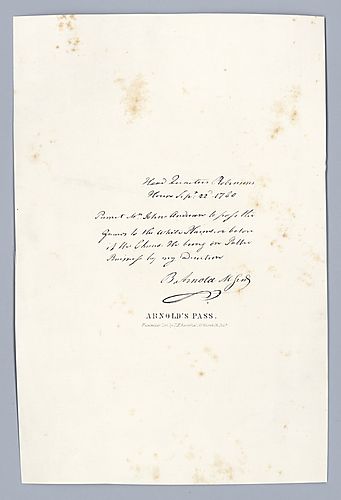 Head Quarters Robinsons
House Sepr. 22d. 1780
Permit Mr. John Anderson to pass the
Guards to the White Plains, or below
if He Chuses. He being on Public
Business by my Direction
B. Arnold M Genl
ARNOLD'S PASS.